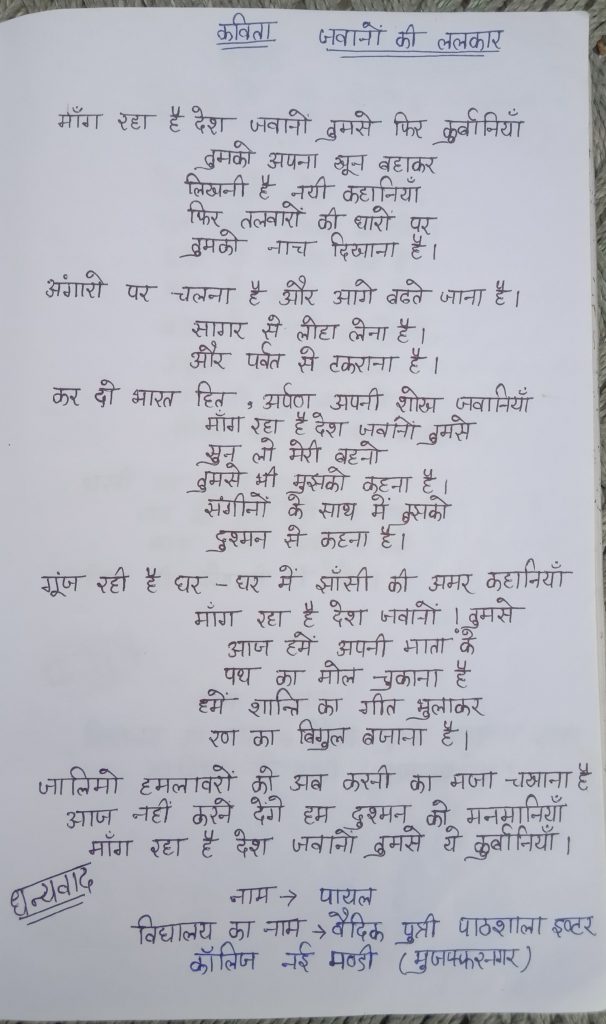 कविता जवानों की ललकार
माँग रहा है देश जवानों तुमसे फिर कुर्वानियाँ
तुमको अपना खून बहाकर
लिखनी है नयी कहानियाँ
फिर तलवारों की धारों पर
तुमको नाच दिखाना है।
अंगारो पर चलना है और आगे बढते जाना है।
सागर से लोहा लेना है।
और पर्वत से टकराना है।
कर दो भारत हित, अर्पण अपनी शोख जवानियाँ
माँग रहा है देश जवानों तुमसे
सुन लो मेरी बहनो
तुमसे भी मुझको कहना है।
संगीनों के साथ में तुमको
दुश्मन से कहना है।
गूंज रही है घर - घर में झाँसी की अमर कहानियाँ
माँग रहा है देश जवानों। तुमसे
आज हमें अपनी माता के
पथ का मोल चुकाना है
हमें शान्ति का गीत भुलाकर
रण का बिगुल बजाना है।
जालिमो हमलावरों को अब करनी का मजा चखाना है
आज नहीं करने देंगे हम दुश्मन को मनमानियाँ
माँग रहा है देश जवानों तुमसे ये कुर्वानियाँ।
धन्यवाद
नाम → पायल
विद्यालय का नाम → वैदिक पुत्री पाठशाला इण्टर
कॉलिज नई मण्डी (मुजफ्फरनगर)